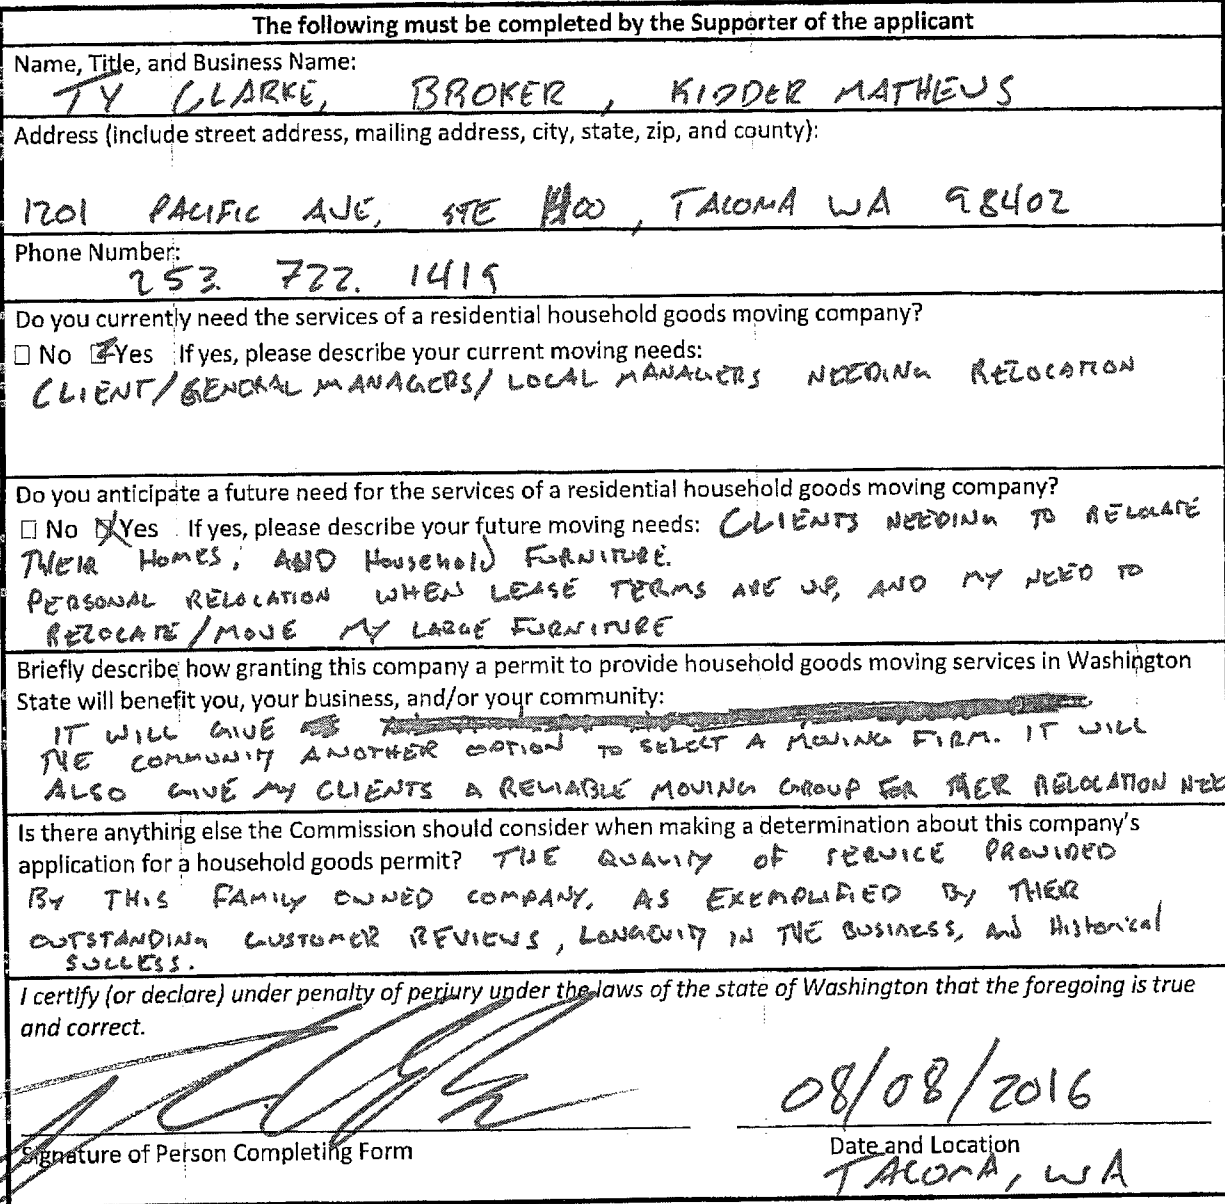 The following must be completed by the Supporter of the applicant
Name, Title, and Business Name:
TY CLARKE, BROKER, KIDDER MATHEWS
Address (include street address, mailing address, city, state, zip, and county):
1201 PACIFIC AVE, STE 1400, TACOMA WA 98402
Phone Number:
253. 722. 1419
Do you currently need the services of a residential household goods moving company?
☐ No ☑ Yes If yes, please describe your current moving needs:
CLIENT/GENERAL MANAGERS/LOCAL MANAGERS NEEDING RELOCATION
Do you anticipate a future need for the services of a residential household goods moving company?
☐ No ☒ Yes If yes, please describe your future moving needs: CLIENTS NEEDING TO RELOCATE
THEIR HOMES, AND HOUSEHOLD FURNITURE.
PERSONAL RELOCATION WHEN LEASE TERMS ARE UP, AND MY NEED TO
RELOCATE/MOVE MY LARGE FURNITURE
Briefly describe how granting this company a permit to provide household goods moving services in Washington
State will benefit you, your business, and/or your community:
IT WILL GIVE
THE COMMUNITY ANOTHER OPTION TO SELECT A MOVING FIRM. IT WILL
ALSO GIVE MY CLIENTS A RELIABLE MOVING GROUP FOR THER RELOCATION NEE
Is there anything else the Commission should consider when making a determination about this company's
application for a household goods permit? THE QUALITY OF SERVICE PROVIDED
BY THIS FAMILY OWNED COMPANY, AS EXEMPLIFIED BY THER
OUTSTANDING CUSTOMER REVIEWS, LONGEVITY IN THE BUSINESS, AND HISTORICAL
SUCCESS.
I certify (or declare) under penalty of perjury under the laws of the state of Washington that the foregoing is true
and correct.
08/08/2016
Signature of Person Completing Form
Date and Location
TACOMA, WA